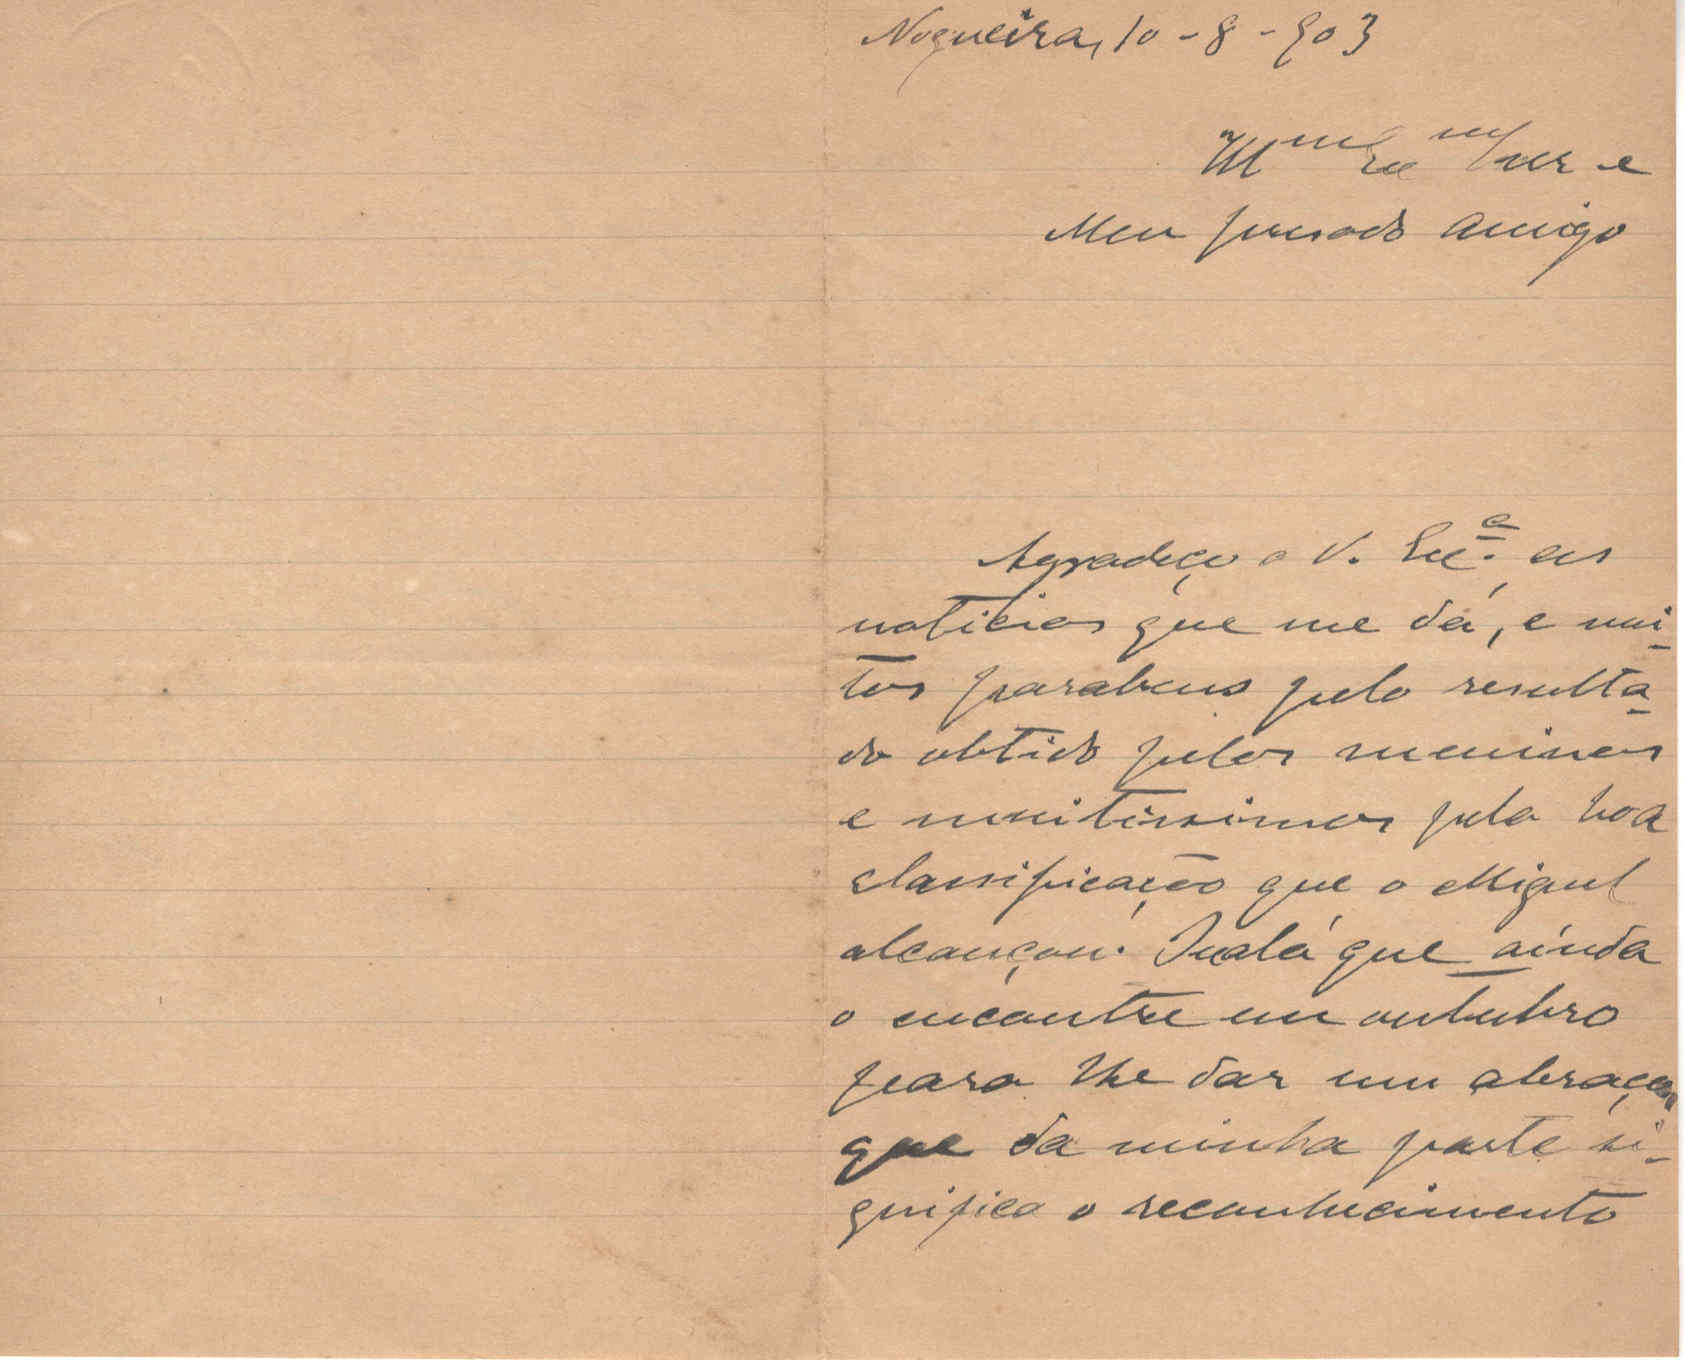 Nogueira, 10-8-903
Ill.mo Ex.mo Snr e
Meu presado amigo
Agradeço a V. Exc.ª as
noticias que me dá, e mui-
tos parabens pelo resulta-
do obtido pelos meninos
e muitissimos pela boa
classificação que o Miguel
alcançou. Oxalá que ainda
o encontre em outubro
para lhe dar um abraço,
que da minha parte si-
gnifica o reconhecimento